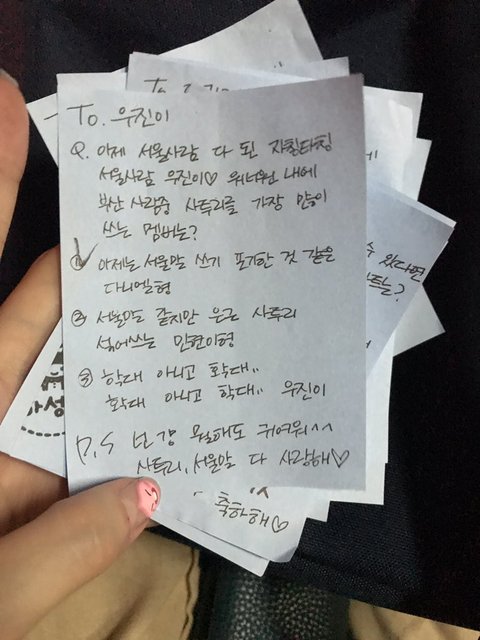 To. 우진이
Q. 이제 서울사람 다 된 자칭타칭
서울사람 우진이♡ 워너원 내에
부산 사람중 사투리를 가장 많이
쓰는 멤버는?
① 이제는 서울말 쓰기 포기한 것 같은
다니엘형
② 서울말도 좋지만 은근 사투리
섞어쓰는 민현이형
③ 학대 아니고 확대..
확대 아니고 학대.. 우진이
P.S 난 걍 뭘해도 귀여워^^
사투리, 서울말 다 사랑해♡
축하해♡
수 있다면
는?
To.